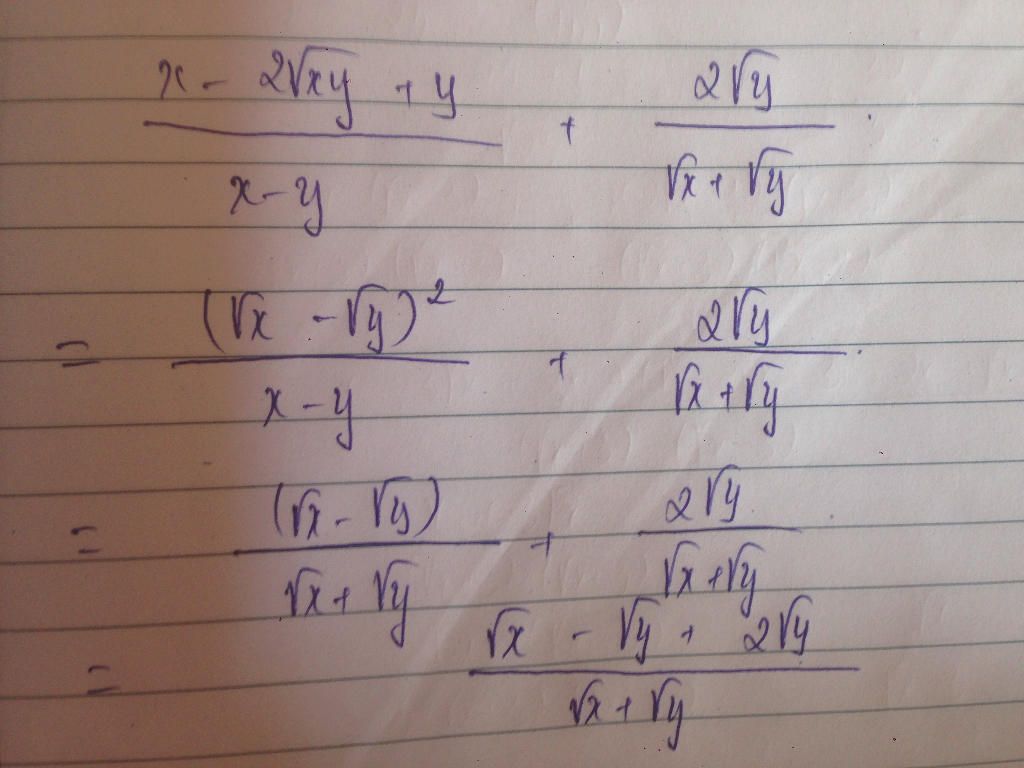 x - 2√xy + y / x - y + 2√y / √x + √y
= (√x - √y)² / x - y + 2√y / √x + √y
= (√x - √y) / √x + √y + 2√y / √x + √y
= √x - √y + 2√y / √x + √y